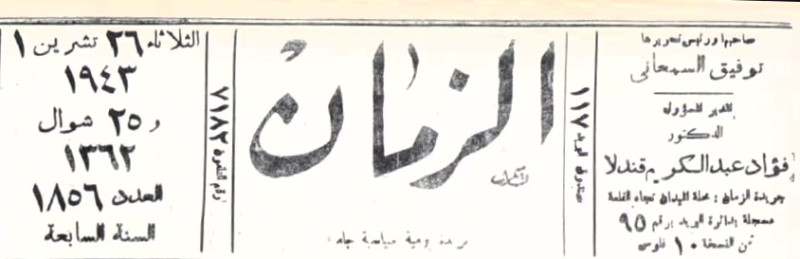 صاحبها ورئيس تحريرها
توفيق السمعاني
المدير المسؤول
الدكتور
فؤاد عبدالكريم قندلا
جريدة الزمان : محلة الميدان تجاه القلعة
مسجلة بدائرة البريد برقم ٩٥
ثمن النسخة ١٠ فلوس
صندوق البريد ١١٧
الزمان
جريدة يومية سياسية جامعة
رقم التلفون ٧١٨٢
الثلاثاء ٢٦ تشرين ١
١٩٤٣
و ٢٥ شوال
١٣٦٢
العدد ١٨٥٦
السنة السابعة